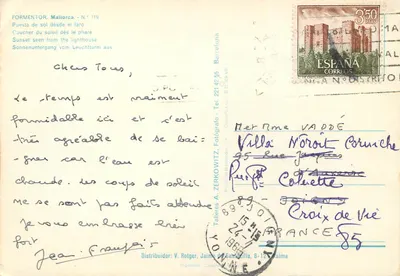 FORMENTOR. Mallorca - N.° 119
Puesta de sol desde el faro
Coucher du soleil dès le phare
Sunset seen from the lighthouse
Sonnenuntergang vom Leuchtturm aus
3,50
PTAS
ESPAÑA
CORREOS
Chers Tous,
Le temps est vraiment
formidable ici et c'est
très agréable de se bai-
gner car l'eau est
chaude. Les coups de soleil
ne se sont pas faits attendre
je vous embrasse très
fort
Jean-François
A. ZERKOWITZ, Fotógrafo
Barcelona
M et Mme VADDÉ
Villa Noroit Corniche
Colette
Croix de Vie
FRANCE
85
JOIGNY
15-15
YONNE
Distribuidor: V. Rotger,